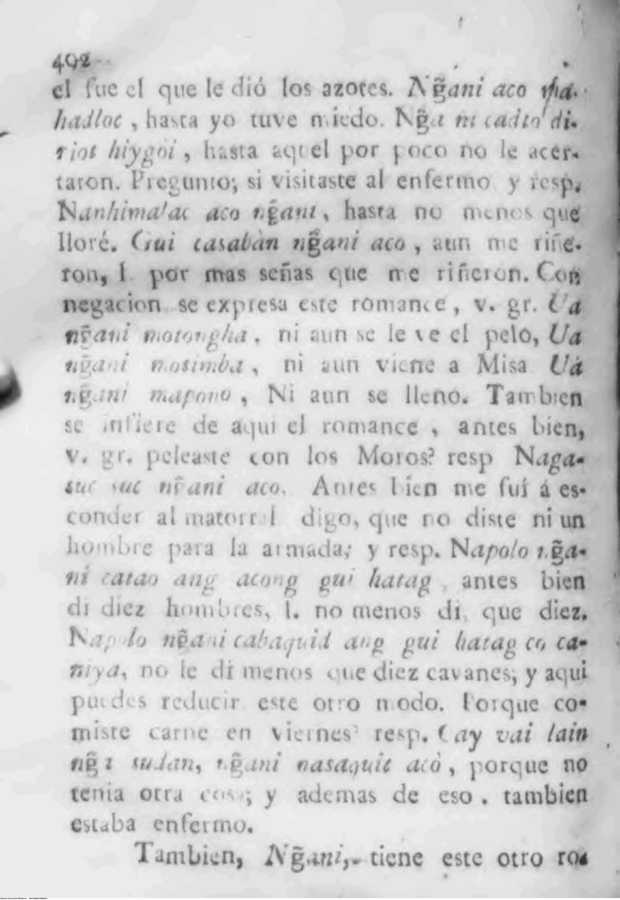 492
el fue el que le dió los azotes. Ng̃ani aco
hadloc, hasta yo tuve miedo. Ng̃a ni cadto di-
riot hiygoi, hasta aquel por poco no le acer-
taron. Pregunto; si visitaste al enfermo y resp.
Nanhimalac aco ng̃ani, hasta no menos que
lloré. Gui casabàn ng̃ani aco, aun me riñe-
ron, l. por mas señas que me riñeron. Con
negacion se expresa este romance, v. gr. Ua
ng̃ani motongha, ni aun se le ve el pelo, Ua
ng̃ani mosimba, ni aun viene a Misa Uà
ng̃ani mapono, Ni aun se lleno. Tambien
se infiere de aqui el romance, antes bien,
v. gr. peleaste con los Moros? resp Naga-
suc suc ng̃ani aco. Antes bien me fuí á es-
conder al matorral digo, que no diste ni un
hombre para la armada; y resp. Napolo ng̃a-
ni catao ang acong gui hatag, antes bien
di diez hombres, l. no menos di, que diez.
Napolo ng̃ani cabaquid ang gui hatag co ca-
niya, no le di menos que diez cavanes; y aqui
puedes reducir este otro modo. Porque co-
miste carne en viernes? resp. Cay vai lain
ng̃a sudan, ng̃ani nasaquit acò, porque no
tenia otra cosa; y ademas de eso. tambien
estaba enfermo.
Tambien, Ng̃ani, tiene este otro ro-